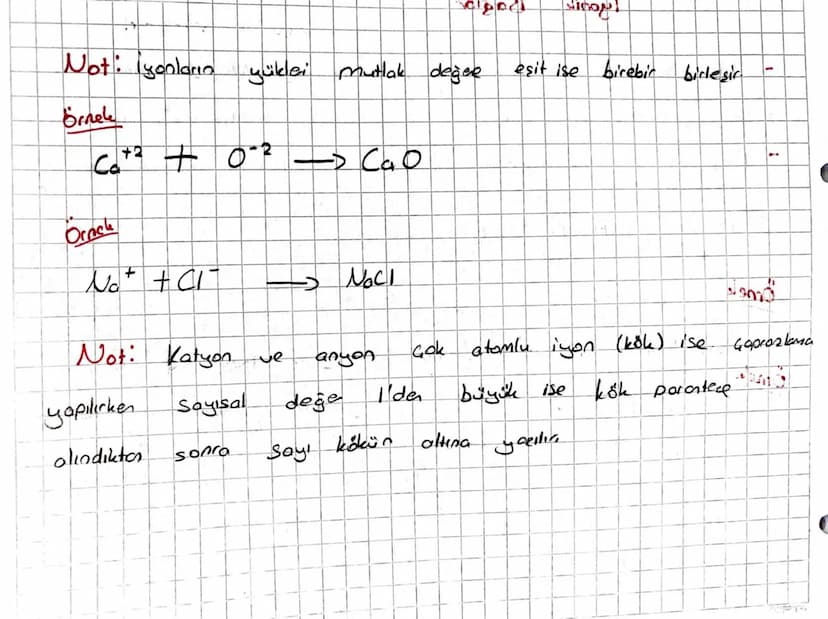 Not: İyonların yüklei mutlak değee eşit ise birebir birleşir.
Örnek
Ca⁺² + O⁻² → CaO
Örnek
Na⁺ + Cl⁻ → NaCl
Not: Katyon ve anyon çok atomlu iyon (kök) ise çaprazlama
yapılırken sayısal değe 1'den büyük ise kök parantece
alındıktan sonra sayı kökün altına yazılır.